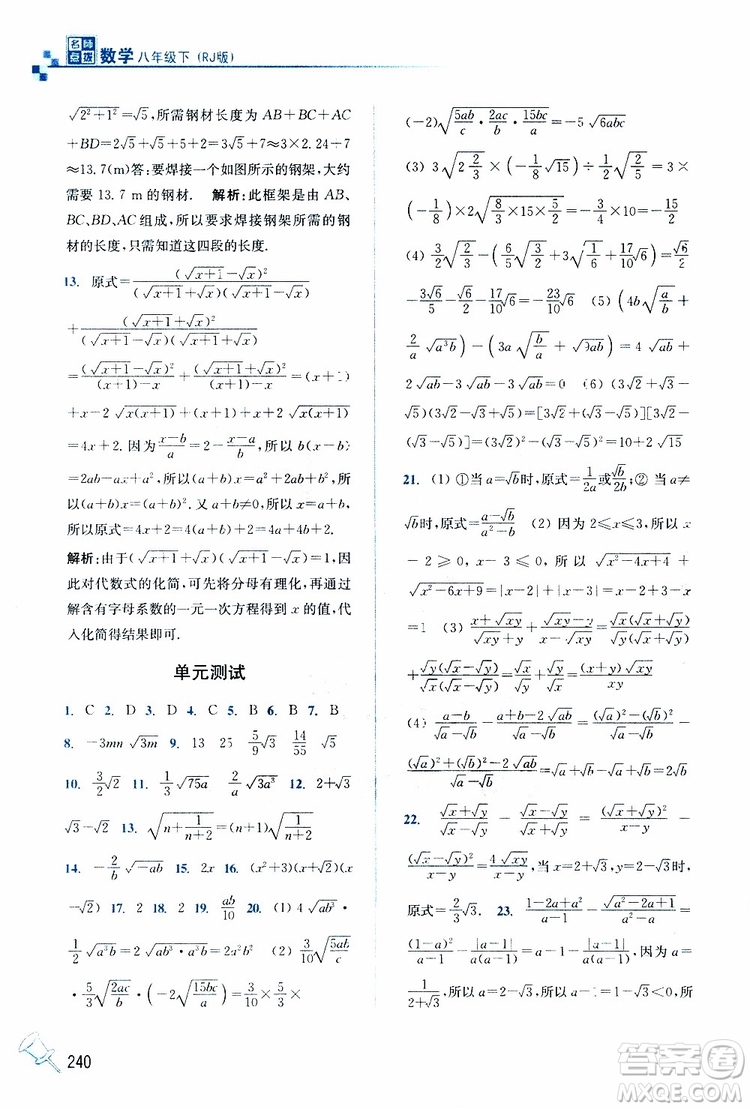 名师点拨 数学八年级下（RJ版）
√(2²+1²)=√5, 所需钢材长度为 AB+BC+AC
+BD=2√5+√5+5+2=3√5+7≈3×2.24+7
≈13.7(m)答: 要焊接一个如图所示的钢架, 大约
需要 13.7 m的钢材. 解析: 此框架是由 AB、
BC、BD、AC 组成, 所以要求焊接钢架所需的钢
材的长度, 只需知道这四段的长度.
13. 原式=(√(x+1)−√x)²/((√(x+1)+√x)(√(x+1)−√x))
+(√(x+1)+√x)²/((√(x+1)−√x)(√(x+1)+√x))
=(√(x+1)−√x)²/((x+1)−x)+(√(x+1)+√x)²/((x+1)−x)=(x+
+x−2√(x+1)√x+(x+1)+x+2√(x+1)√x
=4x+2. 因为(x−b)/a=2−(x−a)/b, 所以 b(x−b)
=2ab−a(x−a), 所以(a+b)x=a²+2ab+b²,
所以(a+b)x=(a+b)². 又 a+b≠0, 所以 x=a+b,
所以原式=4x+2=4(a+b)+2=4a+4b+2.
解析: 由于(√(x+1)−√x)(√(x+1)+√x)=1, 因
此对代数式的化简, 可先将分母有理化, 再通过
解含有字母系数的一元一次方程得到 x 的值, 代
入化简得结果即可.
单元测试
1. C 2. D 3. D 4. C 5. B 6. B 7. B
8. −3mn √(3m) 9. 13 25 (5/9)√3 14/55 √5
10. (3/2)√2 11. (1/3)√(75a) √(3a³) 12. 2+√3
√3−√2 13. √(n+1/(n+2))=(n+1)√(1/(n+2))
14. −(2/b)√(−ab) 15. 2x 16. (x²+3)(x+√2)(x
−√2) 17. 2 18. 2 19. ab/10 20. (1) 4√(ab³)·
(1/2)√(a³b)=2√(ab³·a³b)=2a²b² (2) (3/10)√(5ab/c)
·(5/3)√(2ac/b)·(−2√(15bc/a))=(3/10)×(5/3)×
(−2)√(5ab/c·2ac/b·15bc/a)=−5√(6abc)
(3) 3√(2 2/3)×(−(1/8)√15)÷(1/2)√(2/5)=3×
(−1/8)×2√(8/3×15×5/2)
(4) (3/2)√(2/3)−(√6/5+(1/2)√24+(2/5)√(10/6))=√6/2
−3√6/5−(2/15)√15=−(√6/10)−(2/15)√15 (5) (4b√(a/b)+
(2/a)√(a³b))−(3a√(b/a)+√(9ab))=4√(ab)+
2√(ab)−3√(ab)−3√(ab)=0 (6) (√3−√2+
√5)(√3+√2−√5)=[√3−(√2−√5)]·
[√3+(√2−√5)]=(√3)²−(√2−√5)²=3−(√2−√5)²=−4+2√10
21. (1) ①当 a=√b时, 原式=1/(2a)或√b/(2b); ②当 a≠
√b时, 原式=(a−√b)/(a²−b) (2) 因为 2≤x≤3, 所以 x
−2≥0, x−3≤0. 所以 √(x²−4x+4)+
√(x²−6x+9)=|x−2|+|x−3|=x−2+3−x
=1 (3) (x+√(xy))/(√(xy)+y)+(√(xy)−y)/(x−√(xy))=√x(√x+√y)/(√y(√x+√y))
+√y(√x−√y)/(√x(√x−√y))=√x/√y+√y/√x=(x+y)√(xy)/(xy)
(4) (a−b)/(√a+√b)−(a+b−2√(ab))/(√a−√b)=
((√a)²−(√b)²)/(√a+√b)−(√a−√b)²/(√a−√b)=√a−√b−(√a−√b)=0
22. (√x+√y)/(√x−√y)−(√x−√y)/(√x+√y)=(√x+√y)²/(x−y)−
(√x−√y)²/(x−y)=4√(xy)/(x−y), 当 x=2+√3, y=2−√3时,
原式=(2/3)√3. 23. (1−2a+a²)/(a−1)−√(a²−2a+1)/(a²−a)=
(a−1)²/(a−1)−|a−1|/(a(a−1))=a−1−|a−1|/(a(a−1)). 因为 a=
1/(2+√3), 所以 a=2−√3, 所以 a−1<0. 所以原
240
答案圈